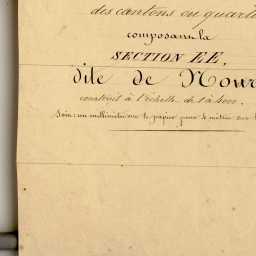 des cantons ou quarti
composant la
SECTION EE,
dite de Nour
construit à l'échelle de 1 à 4000.
Soit : un millimètre sur le papier pour 4 mètres sur l